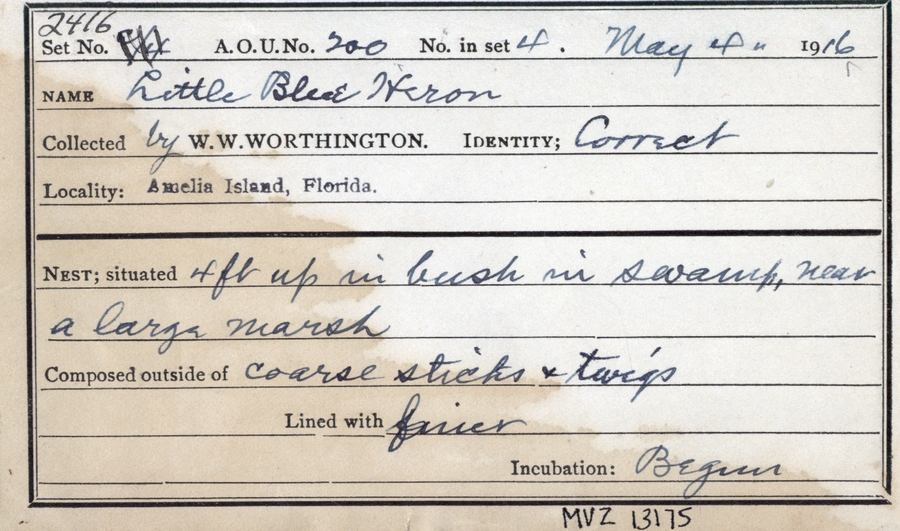 2416
Set No. A.O.U.No. 200 No. in set 4. May 4" 1916
NAME Little Blue Heron
Collected by W.W.WORTHINGTON. IDENTITY; Correct
Locality: Amelia Island, Florida.
NEST; situated 4ft up in bush in swamp, near
a large marsh
Composed outside of coarse sticks & twigs
Lined with finer
Incubation: Begun
MVZ 13175